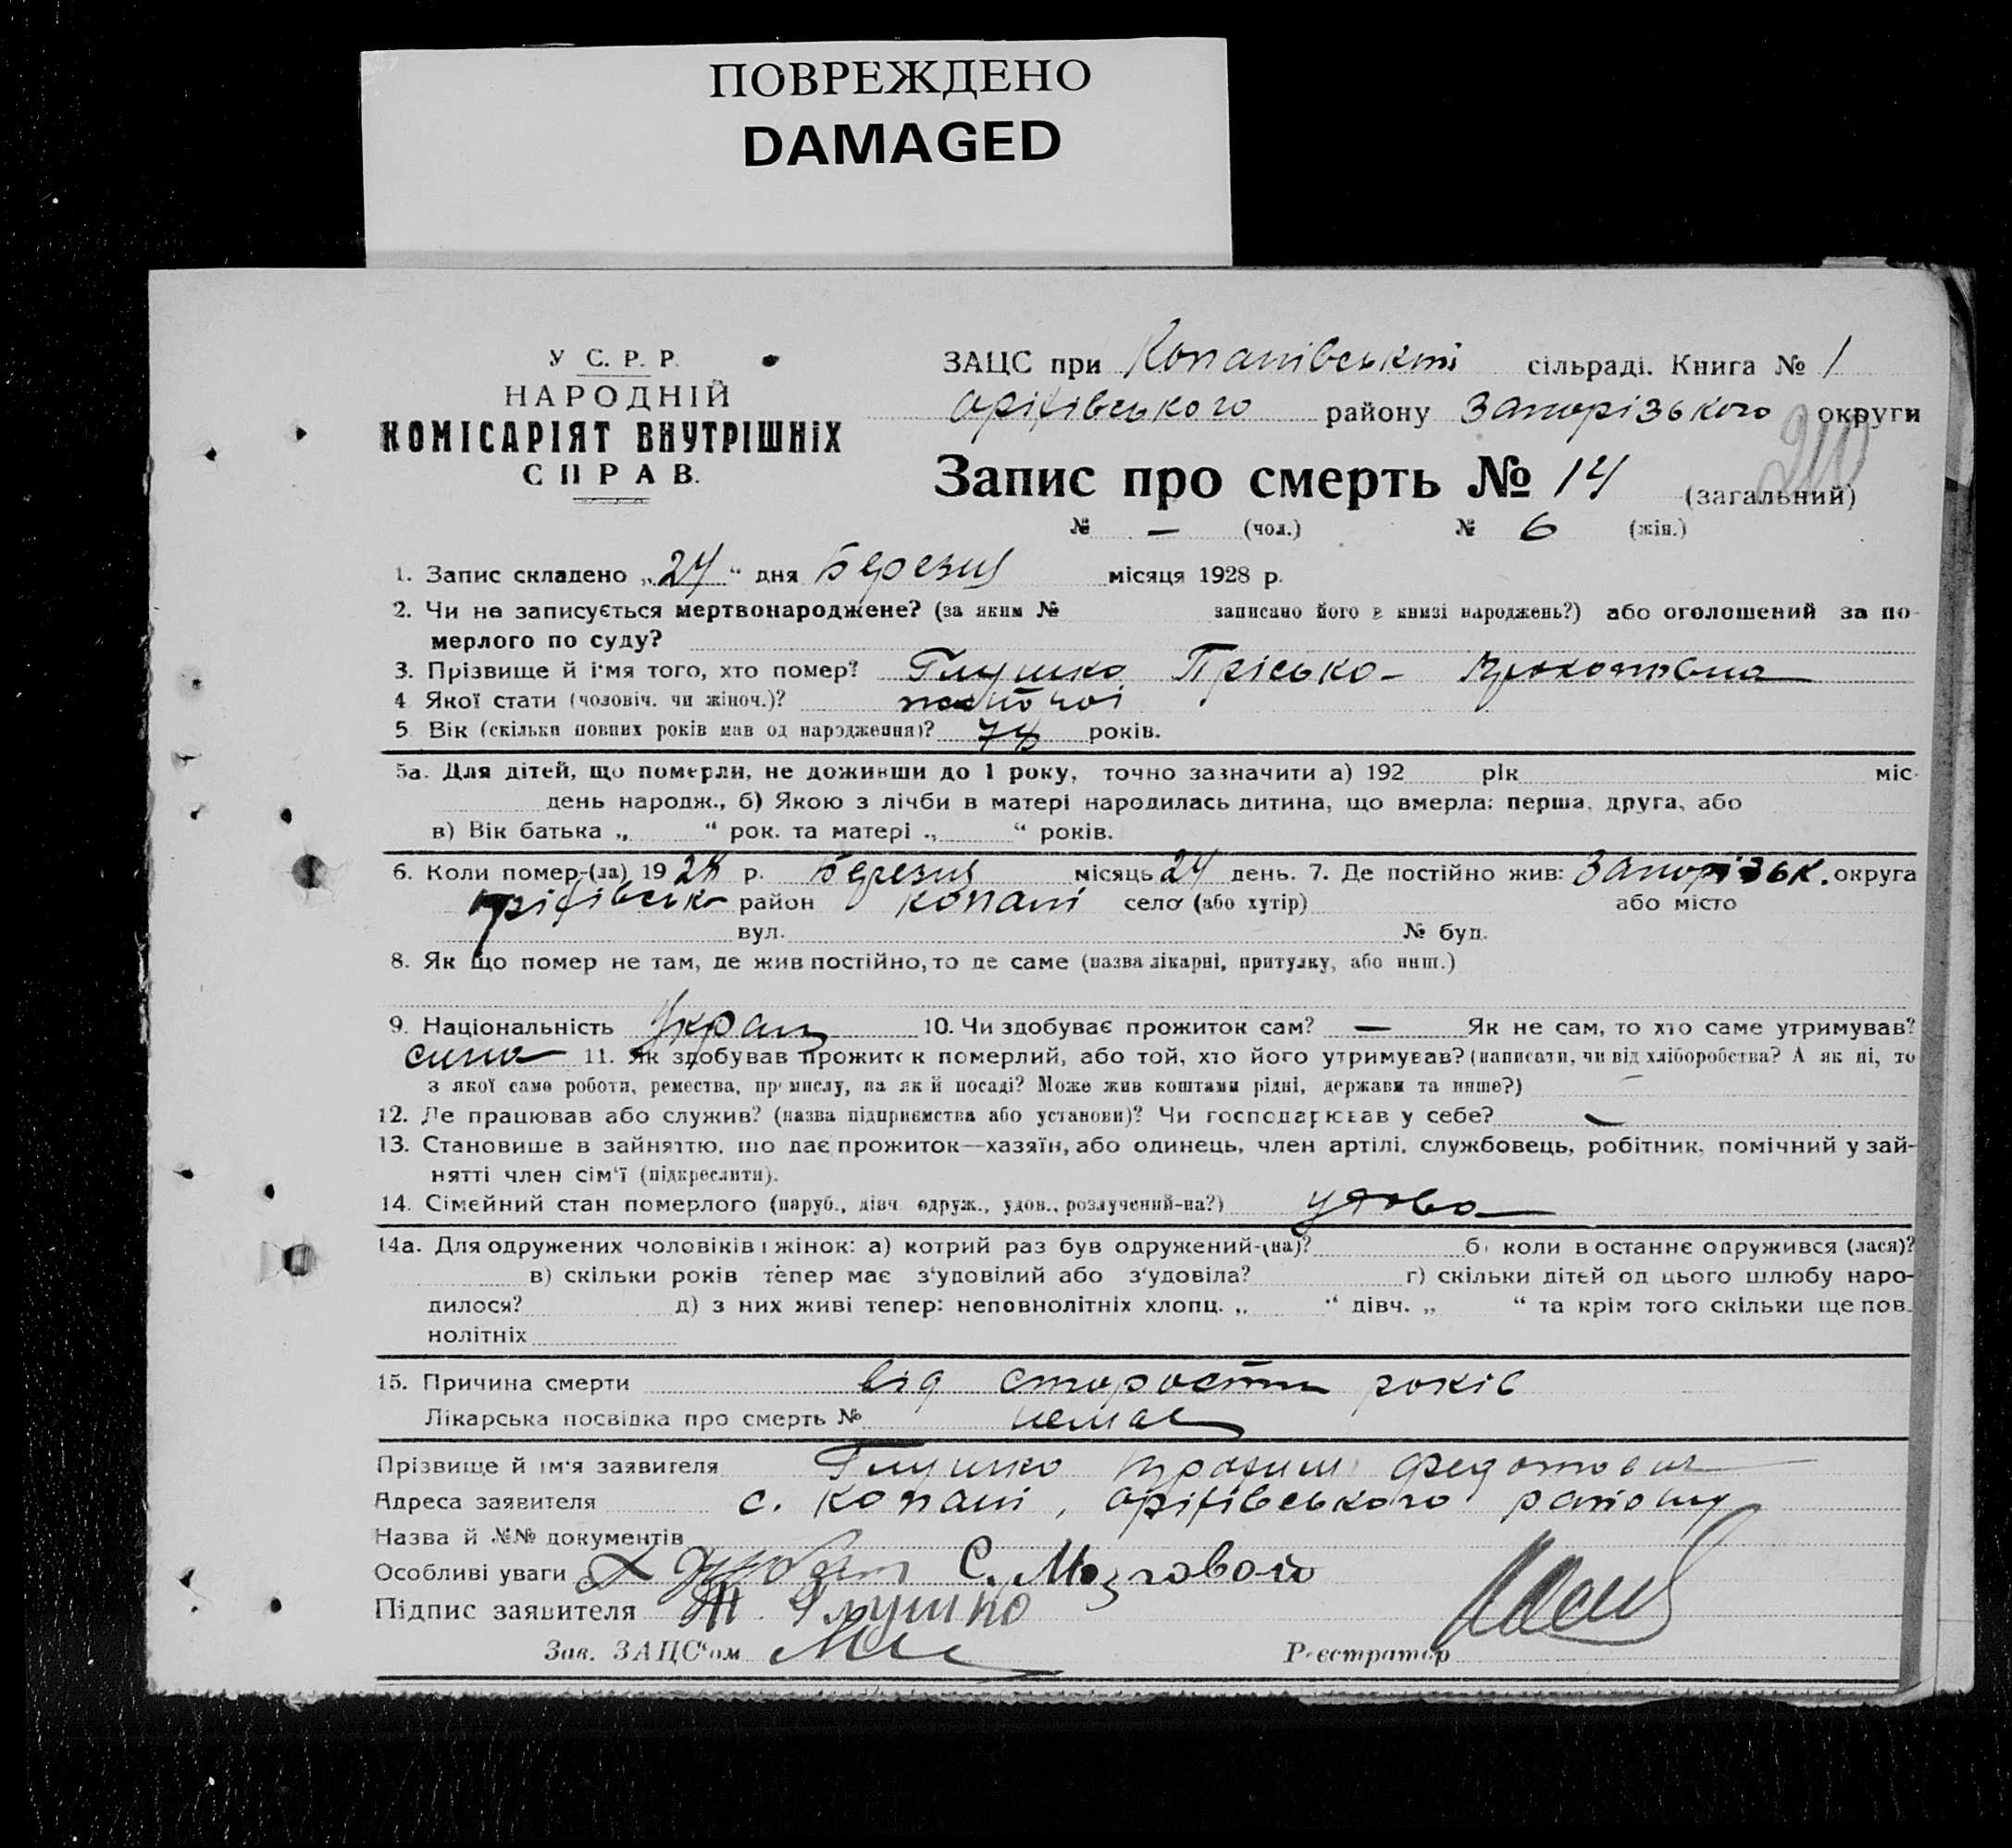 ПОВРЕЖДЕНО
DAMAGED
У С. Р. Р.
НАРОДНІЙ
КОМІСАРІЯТ ВНУТРІШНІХ
СПРАВ.
ЗАЦС при Копанівській сільраді. Книга № 1
Оріхівського району Запорізького округи
Запис про смерть № 14 (загальний)
№ — (чол.) № 6 (жін.)
1. Запис складено „24“ дня Березня місяця 1928 р.
2. Чи не записується мертвонароджене? (за яким № записано його в книзі народжень?) або оголошений за по-
мерлого по суду?
3. Прізвище й ім'я того, хто помер? Глушко Пріська
4 Якої стати (чоловіч. чи жіноч.)? жіночої
5 Вік (скільки повних років мав од народження)? років.
5а. Для дітей, що померли, не доживши до 1 року, точно зазначити а) 192 рік міс-
день народж., б) Якою з лічби в матері народилась дитина, що вмерла: перша, друга, або
в) Вік батька „ “ рок. та матері „ “ років.
6. Коли помер-(ла) 1928 р. Березня місяць 24 день. 7. Де постійно жив: Запорізьк. округа
Оріхівськ район Копані село (або хутір) або місто
вул. № буд.
8. Як що помер не там, де жив постійно, то де саме (назва лікарні, притулку, або инш.)
9. Національність Україн 10. Чи здобуває прожиток сам? — Як не сам, то хто саме утримував?
сина 11. Як здобував прожиток померлий, або той, хто його утримував? (написати, чи від хліборобства? А як ні, то
з якої саме роботи, ремества, промислу, на якій посаді? Може жив коштами рідні, держави та инше?) —
12. Де працював або служив? (назва підприємства або установи)? Чи господарював у себе? —
13. Становище в зайняттю, що дає прожиток—хазяїн, або одинець, член артілі, службовець, робітник, помічний у зай-
нятті член сім'ї (підкреслити).
14. Сімейний стан померлого (паруб., дівч. одруж., удов., розлучений-на?) удова
14а. Для одружених чоловіків і жінок: а) котрий раз був одружений-(на)? б) коли востаннє одружився (лася)?
в) скільки років тепер має з'удовілий або з'удовіла? г) скільки дітей од цього шлюбу наро-
дилося? д) з них живі тепер: неповнолітніх хлопц. „ “ дівч. „ “ та крім того скільки ще пов-
нолітніх
15. Причина смерти від старости років
Лікарська посвідка про смерть № немає
Прізвище й ім'я заявителя Глушко Федотович
Адреса заявителя с. Копані, Оріхівського району
Назва й №№ документів
Особливі уваги С. Мозговой
Підпис заявителя Глушко
Зав. ЗАЦС'ом
Реєстратор